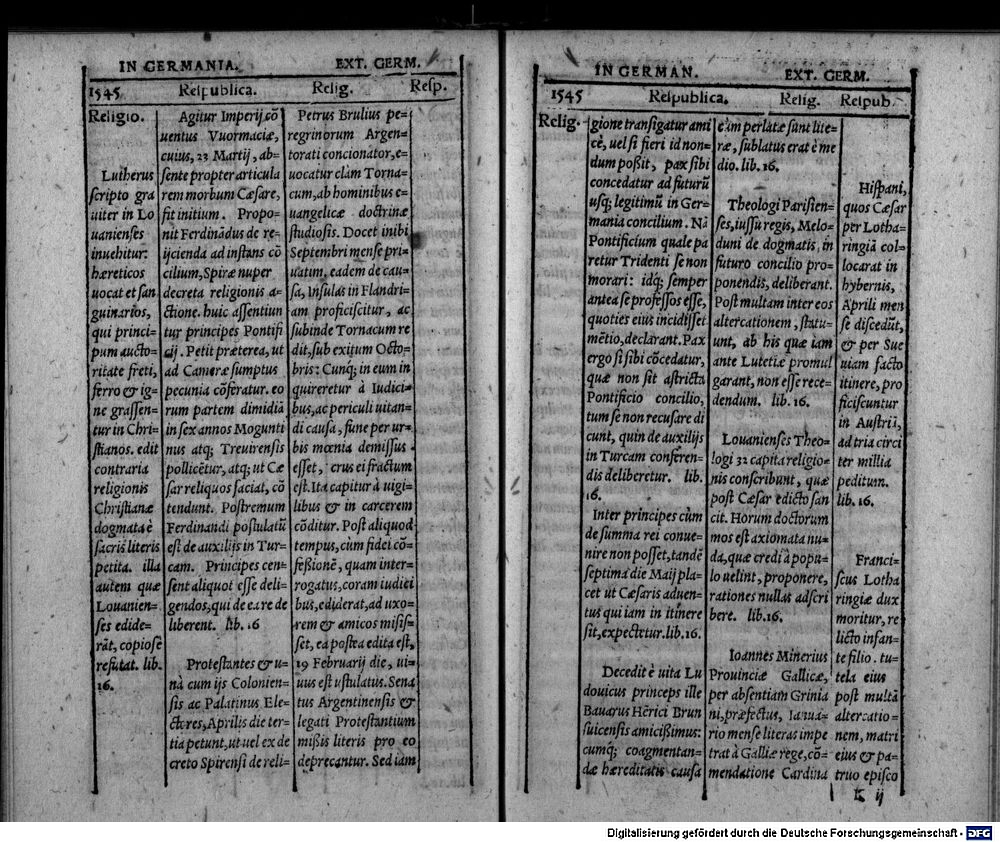 IN GERMANIA.
EXT. GERM.
1545
Respublica.
Relig.
Resp.
Religio.
Lutherus
scripto gra
uiter in Lo
uanienses
inuehitur:
hæreticos
uocat et san
guinarios,
qui princi-
pum aucto-
ritate freti,
ferro & ig-
ne grassen-
tur in Chri-
stianos. edit
contraria
religionis
Christianæ
dogmata è
sacris literis
petita. illa
autem quæ
Louanien-
ses edide-
rãt, copiose
refutat. lib.
16.
Agitur Imperij cõ
uentus Vuormaciæ,
cuius, 23 Martij, ab-
sente propter articula
rem morbum Cæsare,
fit initium. Propo-
nit Ferdinãdus de re-
ijcienda ad instans cõ
cilium, Spiræ nuper
decreta religionis a-
ctione. huic assentiun
tur principes Pontifi
cij. Petit præterea, ut
ad Cameræ sumptus
pecunia cõferatur. eo
rum partem dimidiã
in sex annos Mogunti
nus atq; Treuirensis
pollicẽtur, atq; ut Cæ
sar reliquos faciat, cõ
tendunt. Postremum
Ferdinandi postulatũ
est de auxilijs in Tur-
cam. Principes cen-
sent aliquot esse deli-
gendos, qui de ea re de
liberent. lib. 16
Protestantes & u-
nà cum ijs Colonien-
sis ac Palatinus Ele-
ctores, Aprilis die ter-
tia petunt, ut uel ex de
creto Spirensi de reli-
Petrus Brulius pe-
regrinorum Argen-
torati concionator, e-
uocatur clàm Torna-
cum, ab hominibus e-
uangelicæ doctrinæ
studiosis. Docet inibi
Septembri mense pri
uatim. eadem de cau-
sa, Insulas in Flandri-
am proficiscitur, ac
subinde Tornacum re
dit, sub exitum Octo-
bris: Cunq; in eum in
quireretur à Iudici-
bus, ac periculi uitan-
di causa, fune per ur-
bis mœnia demissus
esset, crus ei fractum
est. Ita capitur à uigi-
libus & in carcerem
cõditur. Post aliquod
tempus, cum fidei cõ-
fessionẽ, quam inter-
rogatus, coram iudici
bus, ediderat, ad uxo-
rem & amicos misis-
set, ea postea edita est,
19 Februarij die, ui-
uus est ustulatus. Sena
tus Argentinensis &
legati Protestantium
missis literis pro eo
deprecantur. Sed iam
IN GERMAN.
EXT. GERM.
1545
Respublica.
Relig.
Respub.
Relig.
gione transigatur ami
cè, uel si fieri id non-
dum possit, pax sibi
concedatur ad futurũ
usq; legitimũ in Ger-
mania concilium. Nã
Pontificium quale pa
retur Tridenti se non
morari: idq; semper
antea se professos esse,
quoties eius incidisset
mẽtio, declarant. Pax
ergo si sibi cõcedatur,
quæ non sit astricta
Pontificio concilio,
tum se non recusare di
cunt, quin de auxilijs
in Turcam conferen-
dis deliberetur. lib.
16.
Inter principes cùm
de summa rei conue-
nire non posset, tandẽ
septima die Maij pla-
cet ut Cæsaris aduen-
tus qui iam in itinere
sit, expectetur. lib. 16.
Decedit è uita Lu
douicus princeps ille
Bauarus Hẽrici Brun
suicensis amicissimus:
cumq; coagmentan-
dæ hæreditatis causa
eàm perlatæ sunt lite-
ræ, sublatus erat è me
dio. lib. 16.
Theologi Parisien-
ses, iussu regis, Melo-
duni de dogmatis, in
futuro concilio pro-
ponendis, deliberant.
Post multam inter eos
altercationem, statu-
unt, ab his quæ iam
ante Lutetiæ promul
garant, non esse rece-
dendum. lib. 16.
Louanienses Theo-
logi 32 capita religio-
nis conscribunt, quæ
post Cæsar edicto san
cit. Horum doctorum
mos est axiomata nu-
da, quæ credi à popu-
lo uelint, proponere,
rationes nullas adscri
bere. lib. 16.
Ioannes Minerius
Prouinciæ Gallicæ,
per absentiam Grinia
ni, præfectus, Ianua-
rio mense literas impe
trat à Galliæ rege, cõ-
mendatione Cardina
Hispani,
quos Cæsar
per Lotha-
ringiã col-
locarat in
hybernis,
Aprili men
se discedũt,
& per Sue
uiam facto
itinere, pro
ficiscuntur
in Austriã,
ad tria circi
ter millia
peditum.
lib. 16.
Franci-
scus Lotha
ringiæ dux
moritur, re
licto infan-
te filio. tu-
tela eius
post multã
altercatio-
nem, matri
eius & pa-
truo episco
ij
Digitalisierung gefördert durch die Deutsche Forschungsgemeinschaft - DFG